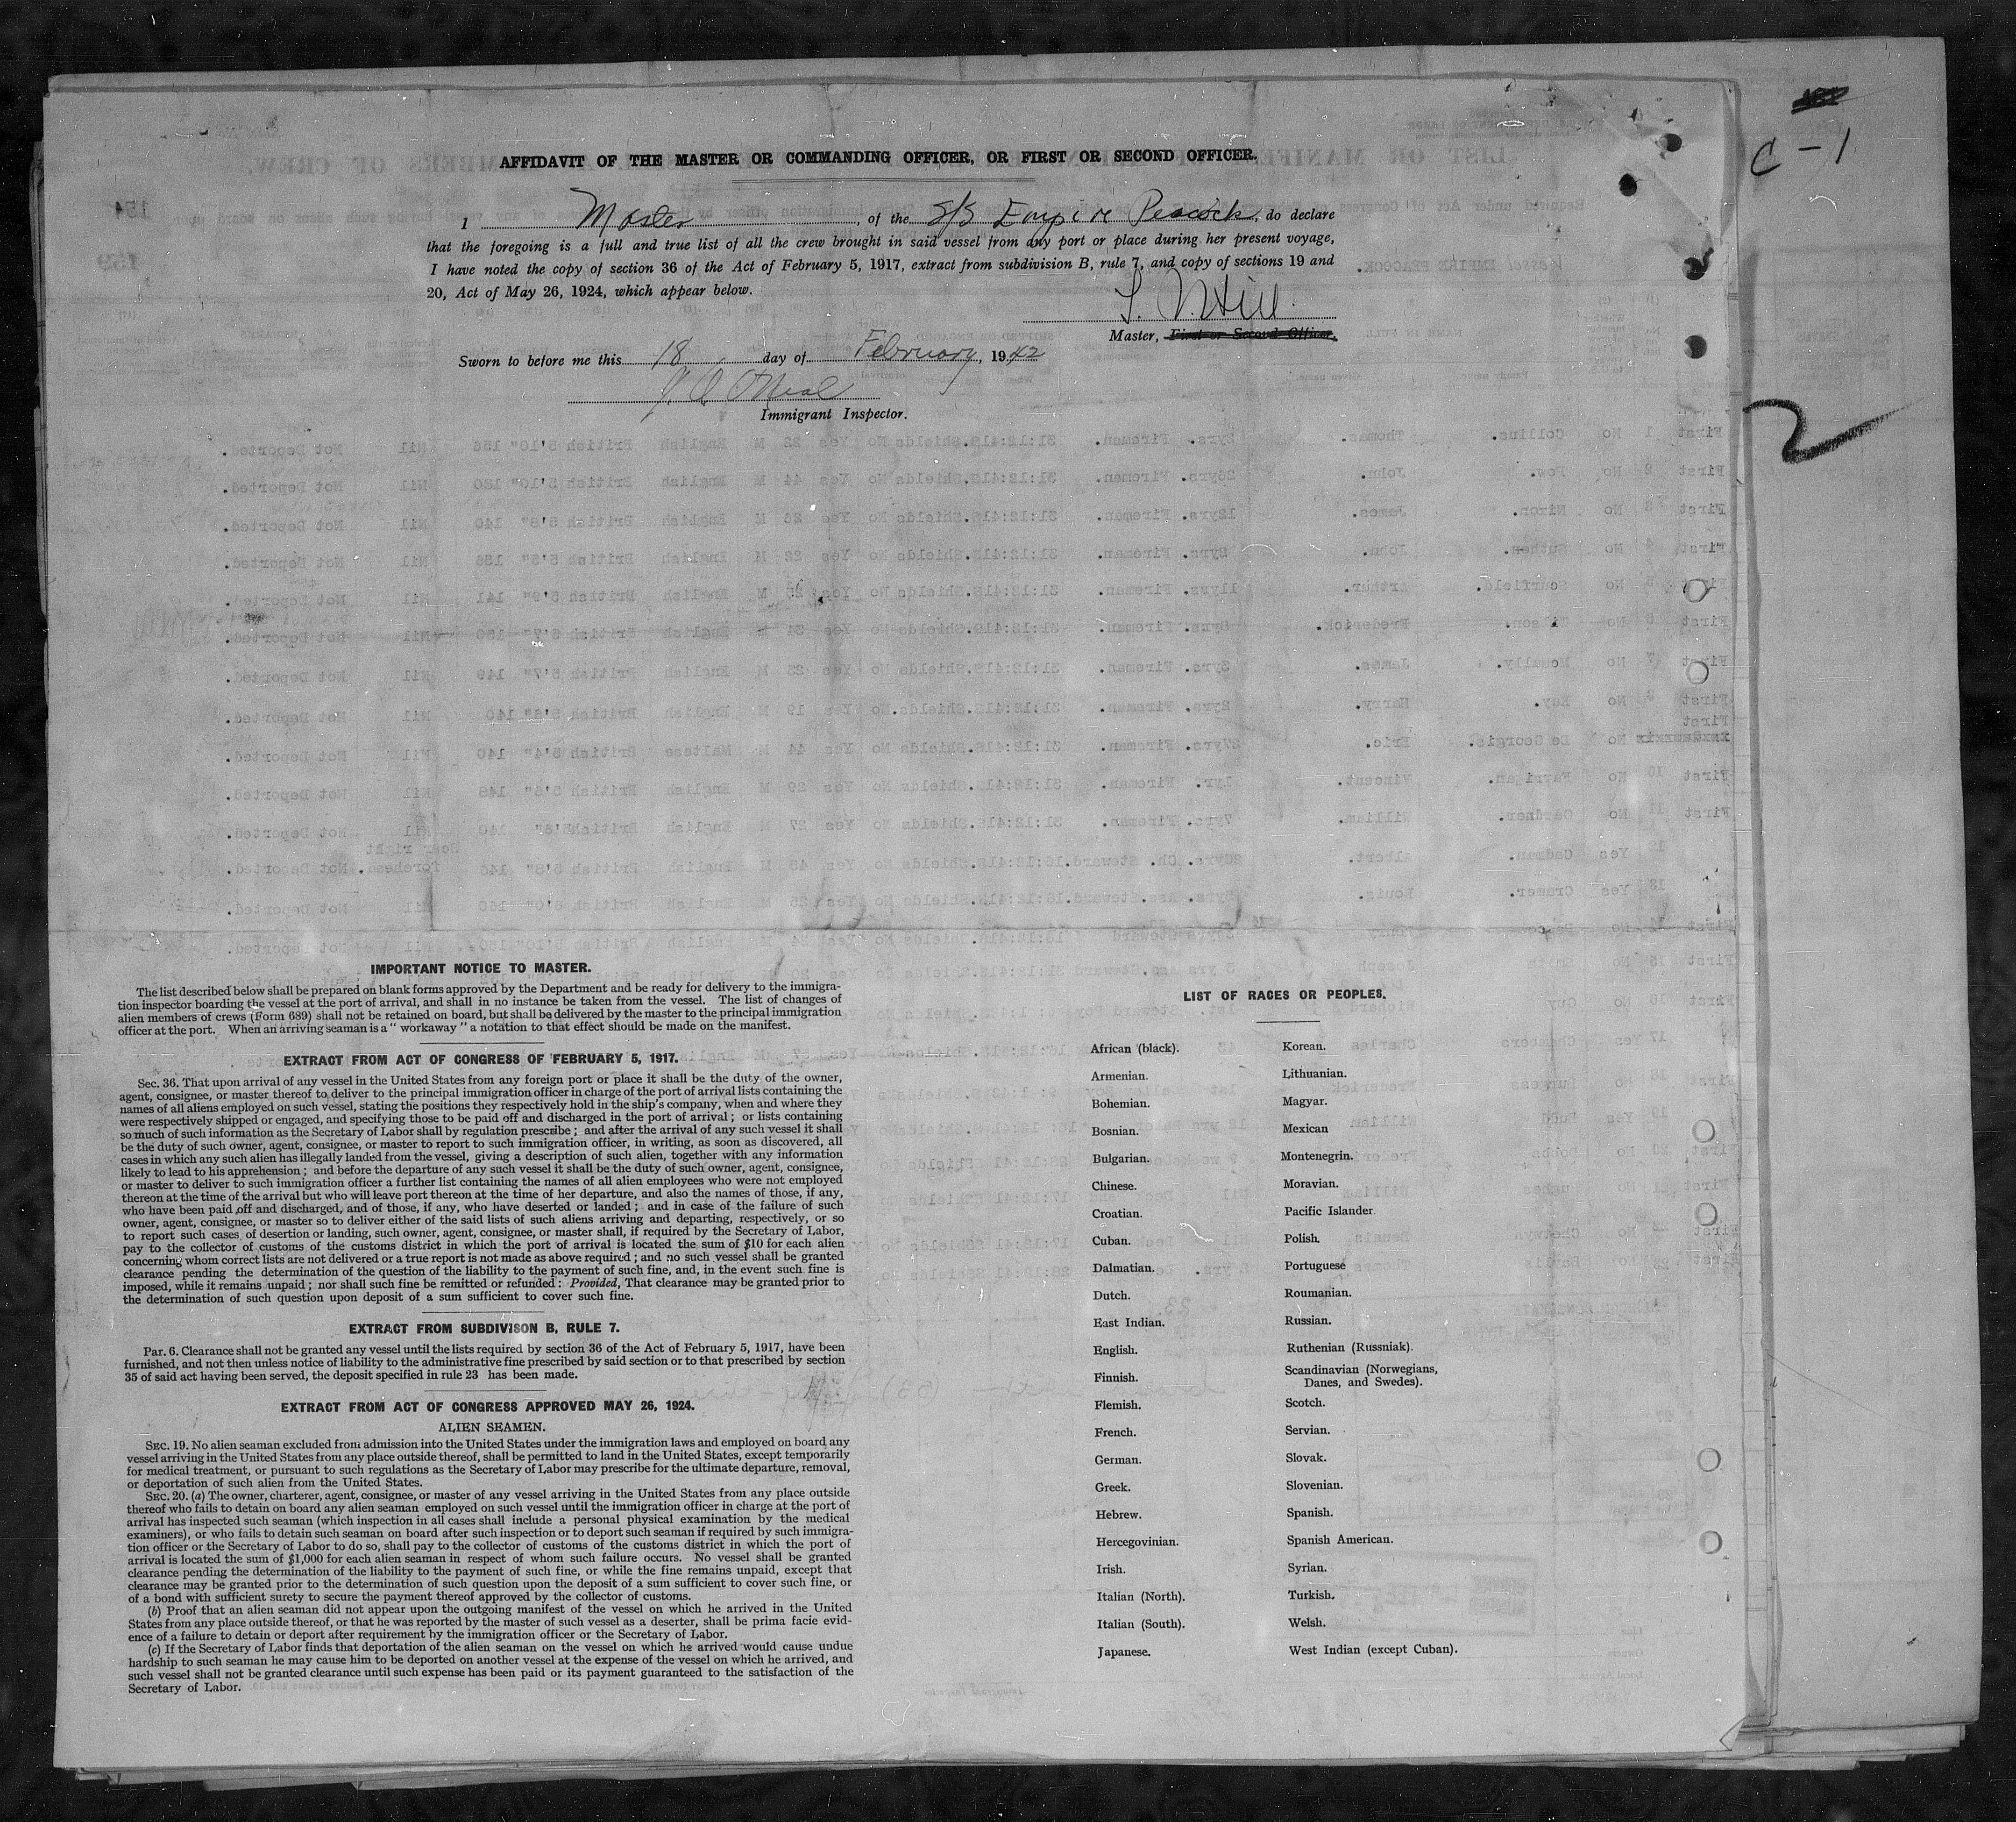 AFFIDAVIT OF THE MASTER OR COMMANDING OFFICER, OR FIRST OR SECOND OFFICER.
I Master, of the S/S Empire Peacock, do declare
that the foregoing is a full and true list of all the crew brought in said vessel from any port or place during her present voyage,
I have noted the copy of section 36 of the Act of February 5, 1917, extract from subdivision B, rule 7, and copy of sections 19 and
20, Act of May 26, 1924, which appear below.
Master, First or Second Officer.
Sworn to before me this 18 day of February, 1942
J. A. O'Neal
Immigrant Inspector.
C-1
2
IMPORTANT NOTICE TO MASTER.
The list described below shall be prepared on blank forms approved by the Department and be ready for delivery to the immigra-
tion inspector boarding the vessel at the port of arrival, and shall in no instance be taken from the vessel. The list of changes of
alien members of crews (Form 689) shall not be retained on board, but shall be delivered by the master to the principal immigration
officer at the port. When an arriving seaman is a "workaway" a notation to that effect should be made on the manifest.
EXTRACT FROM ACT OF CONGRESS OF FEBRUARY 5, 1917.
Sec. 36. That upon arrival of any vessel in the United States from any foreign port or place it shall be the duty of the owner,
agent, consignee, or master thereof to deliver to the principal immigration officer in charge of the port of arrival lists containing the
names of all aliens employed on such vessel, stating the positions they respectively hold in the ship's company, when and where they
were respectively shipped or engaged, and specifying those to be paid off and discharged in the port of arrival; or lists containing
so much of such information as the Secretary of Labor shall by regulation prescribe; and after the arrival of any such vessel it shall
be the duty of such owner, agent, consignee, or master to report to such immigration officer, in writing, as soon as discovered, all
cases in which any such alien has illegally landed from the vessel, giving a description of such alien, together with any information
likely to lead to his apprehension; and before the departure of any such vessel it shall be the duty of such owner, agent, consignee,
or master to deliver to such immigration officer a further list containing the names of all alien employees who were not employed
thereon at the time of the arrival but who will leave port thereon at the time of her departure, and also the names of those, if any,
who have been paid off and discharged, and of those, if any, who have deserted or landed; and in case of the failure of such
owner, agent, consignee, or master so to deliver either of the said lists of such aliens arriving and departing, respectively, or so
to report such cases of desertion or landing, such owner, agent, consignee, or master shall, if required by the Secretary of Labor,
pay to the collector of customs of the customs district in which the port of arrival is located the sum of $10 for each alien
concerning whom correct lists are not delivered or a true report is not made as above required; and no such vessel shall be granted
clearance pending the determination of the question of the liability to the payment of such fine, and, in the event such fine is
imposed, while it remains unpaid; nor shall such fine be remitted or refunded: Provided, That clearance may be granted prior to
the determination of such question upon deposit of a sum sufficient to cover such fine.
EXTRACT FROM SUBDIVISON B, RULE 7.
Par. 6. Clearance shall not be granted any vessel until the lists required by section 36 of the Act of February 5, 1917, have been
furnished, and not then unless notice of liability to the administrative fine prescribed by said section or to that prescribed by section
35 of said act having been served, the deposit specified in rule 23 has been made.
EXTRACT FROM ACT OF CONGRESS APPROVED MAY 26, 1924.
ALIEN SEAMEN.
Sec. 19. No alien seaman excluded from admission into the United States under the immigration laws and employed on board any
vessel arriving in the United States from any place outside thereof, shall be permitted to land in the United States, except temporarily
for medical treatment, or pursuant to such regulations as the Secretary of Labor may prescribe for the ultimate departure, removal,
or deportation of such alien from the United States.
Sec. 20. (a) The owner, charterer, agent, consignee, or master of any vessel arriving in the United States from any place outside
thereof who fails to detain on board any alien seaman employed on such vessel until the immigration officer in charge at the port of
arrival has inspected such seaman (which inspection in all cases shall include a personal physical examination by the medical
examiners), or who fails to detain such seaman on board after such inspection or to deport such seaman if required by such immigra-
tion officer or the Secretary of Labor to do so, shall pay to the collector of customs of the customs district in which the port of
arrival is located the sum of $1,000 for each alien seaman in respect of whom such failure occurs. No vessel shall be granted
clearance pending the determination of the liability to the payment of such fine, or while the fine remains unpaid, except that
clearance may be granted prior to the determination of such question upon the deposit of a sum sufficient to cover such fine, or
of a bond with sufficient surety to secure the payment thereof approved by the collector of customs.
(b) Proof that an alien seaman did not appear upon the outgoing manifest of the vessel on which he arrived in the United
States from any place outside thereof, or that he was reported by the master of such vessel as a deserter, shall be prima facie evid-
ence of a failure to detain or deport after requirement by the immigration officer or the Secretary of Labor.
(c) If the Secretary of Labor finds that deportation of the alien seaman on the vessel on which he arrived would cause undue
hardship to such seaman he may cause him to be deported on another vessel at the expense of the vessel on which he arrived, and
such vessel shall not be granted clearance until such expense has been paid or its payment guaranteed to the satisfaction of the
Secretary of Labor.
LIST OF RACES OR PEOPLES.
African (black).
Armenian.
Bohemian.
Bosnian.
Bulgarian.
Chinese.
Croatian.
Cuban.
Dalmatian.
Dutch.
East Indian.
English.
Finnish.
Flemish.
French.
German.
Greek.
Hebrew.
Hercegovinian.
Irish.
Italian (North).
Italian (South).
Japanese.
Korean.
Lithuanian.
Magyar.
Mexican
Montenegrin.
Moravian.
Pacific Islander
Polish.
Portuguese
Roumanian.
Russian.
Ruthenian (Russniak).
Scandinavian (Norwegians,
Danes, and Swedes).
Scotch.
Servian.
Slovak.
Slovenian.
Spanish.
Spanish American.
Syrian.
Turkish.
Welsh.
West Indian (except Cuban).